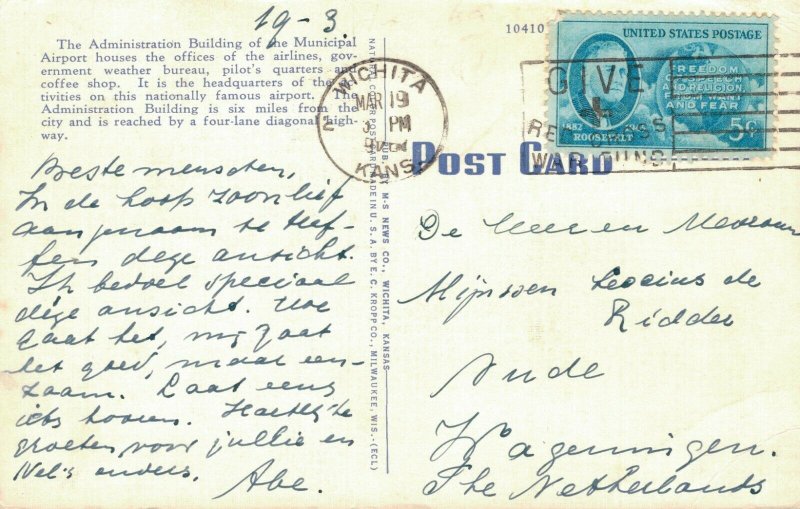 19-3
The Administration Building of the Municipal
Airport houses the offices of the airlines, gov-
ernment weather bureau, pilot's quarters and
coffee shop. It is the headquarters of the ac-
tivities on this nationally famous airport. The
Administration Building is six miles from the
city and is reached by a four-lane diagonal high-
way.
Beste menschen,
In de hoop zoonlief
aangenaam te tref-
fen dege ansicht.
Ik bedoel speciaal
dége ansicht. Hoe
gaat het, mij gaat
het goed, maar een-
zaam. Laat eens
iets hooren. Hartelijke
groeten voor jullie en
Nel's ouders. Abe.
NATURAL COLOR POST CARD MADE IN U. S. A. BY E. C. KROPP CO., MILWAUKEE, WIS.-(ECL)
PUB. BY M-S NEWS CO., WICHITA, KANSAS
10410
WICHITA
2
MAR 19
3 PM
KANS.
POST CARD
UNITED STATES POSTAGE
FREEDOM
OF SPEECH
AND RELIGION,
FROM WANT
AND FEAR
1882
ROOSEVELT
5¢
GIVE
RED CROSS
WAR FUND
De Heer en Mevrouw
Mijnssen Leocius de
Ridder
Oude
Wageningen.
The Netherlands